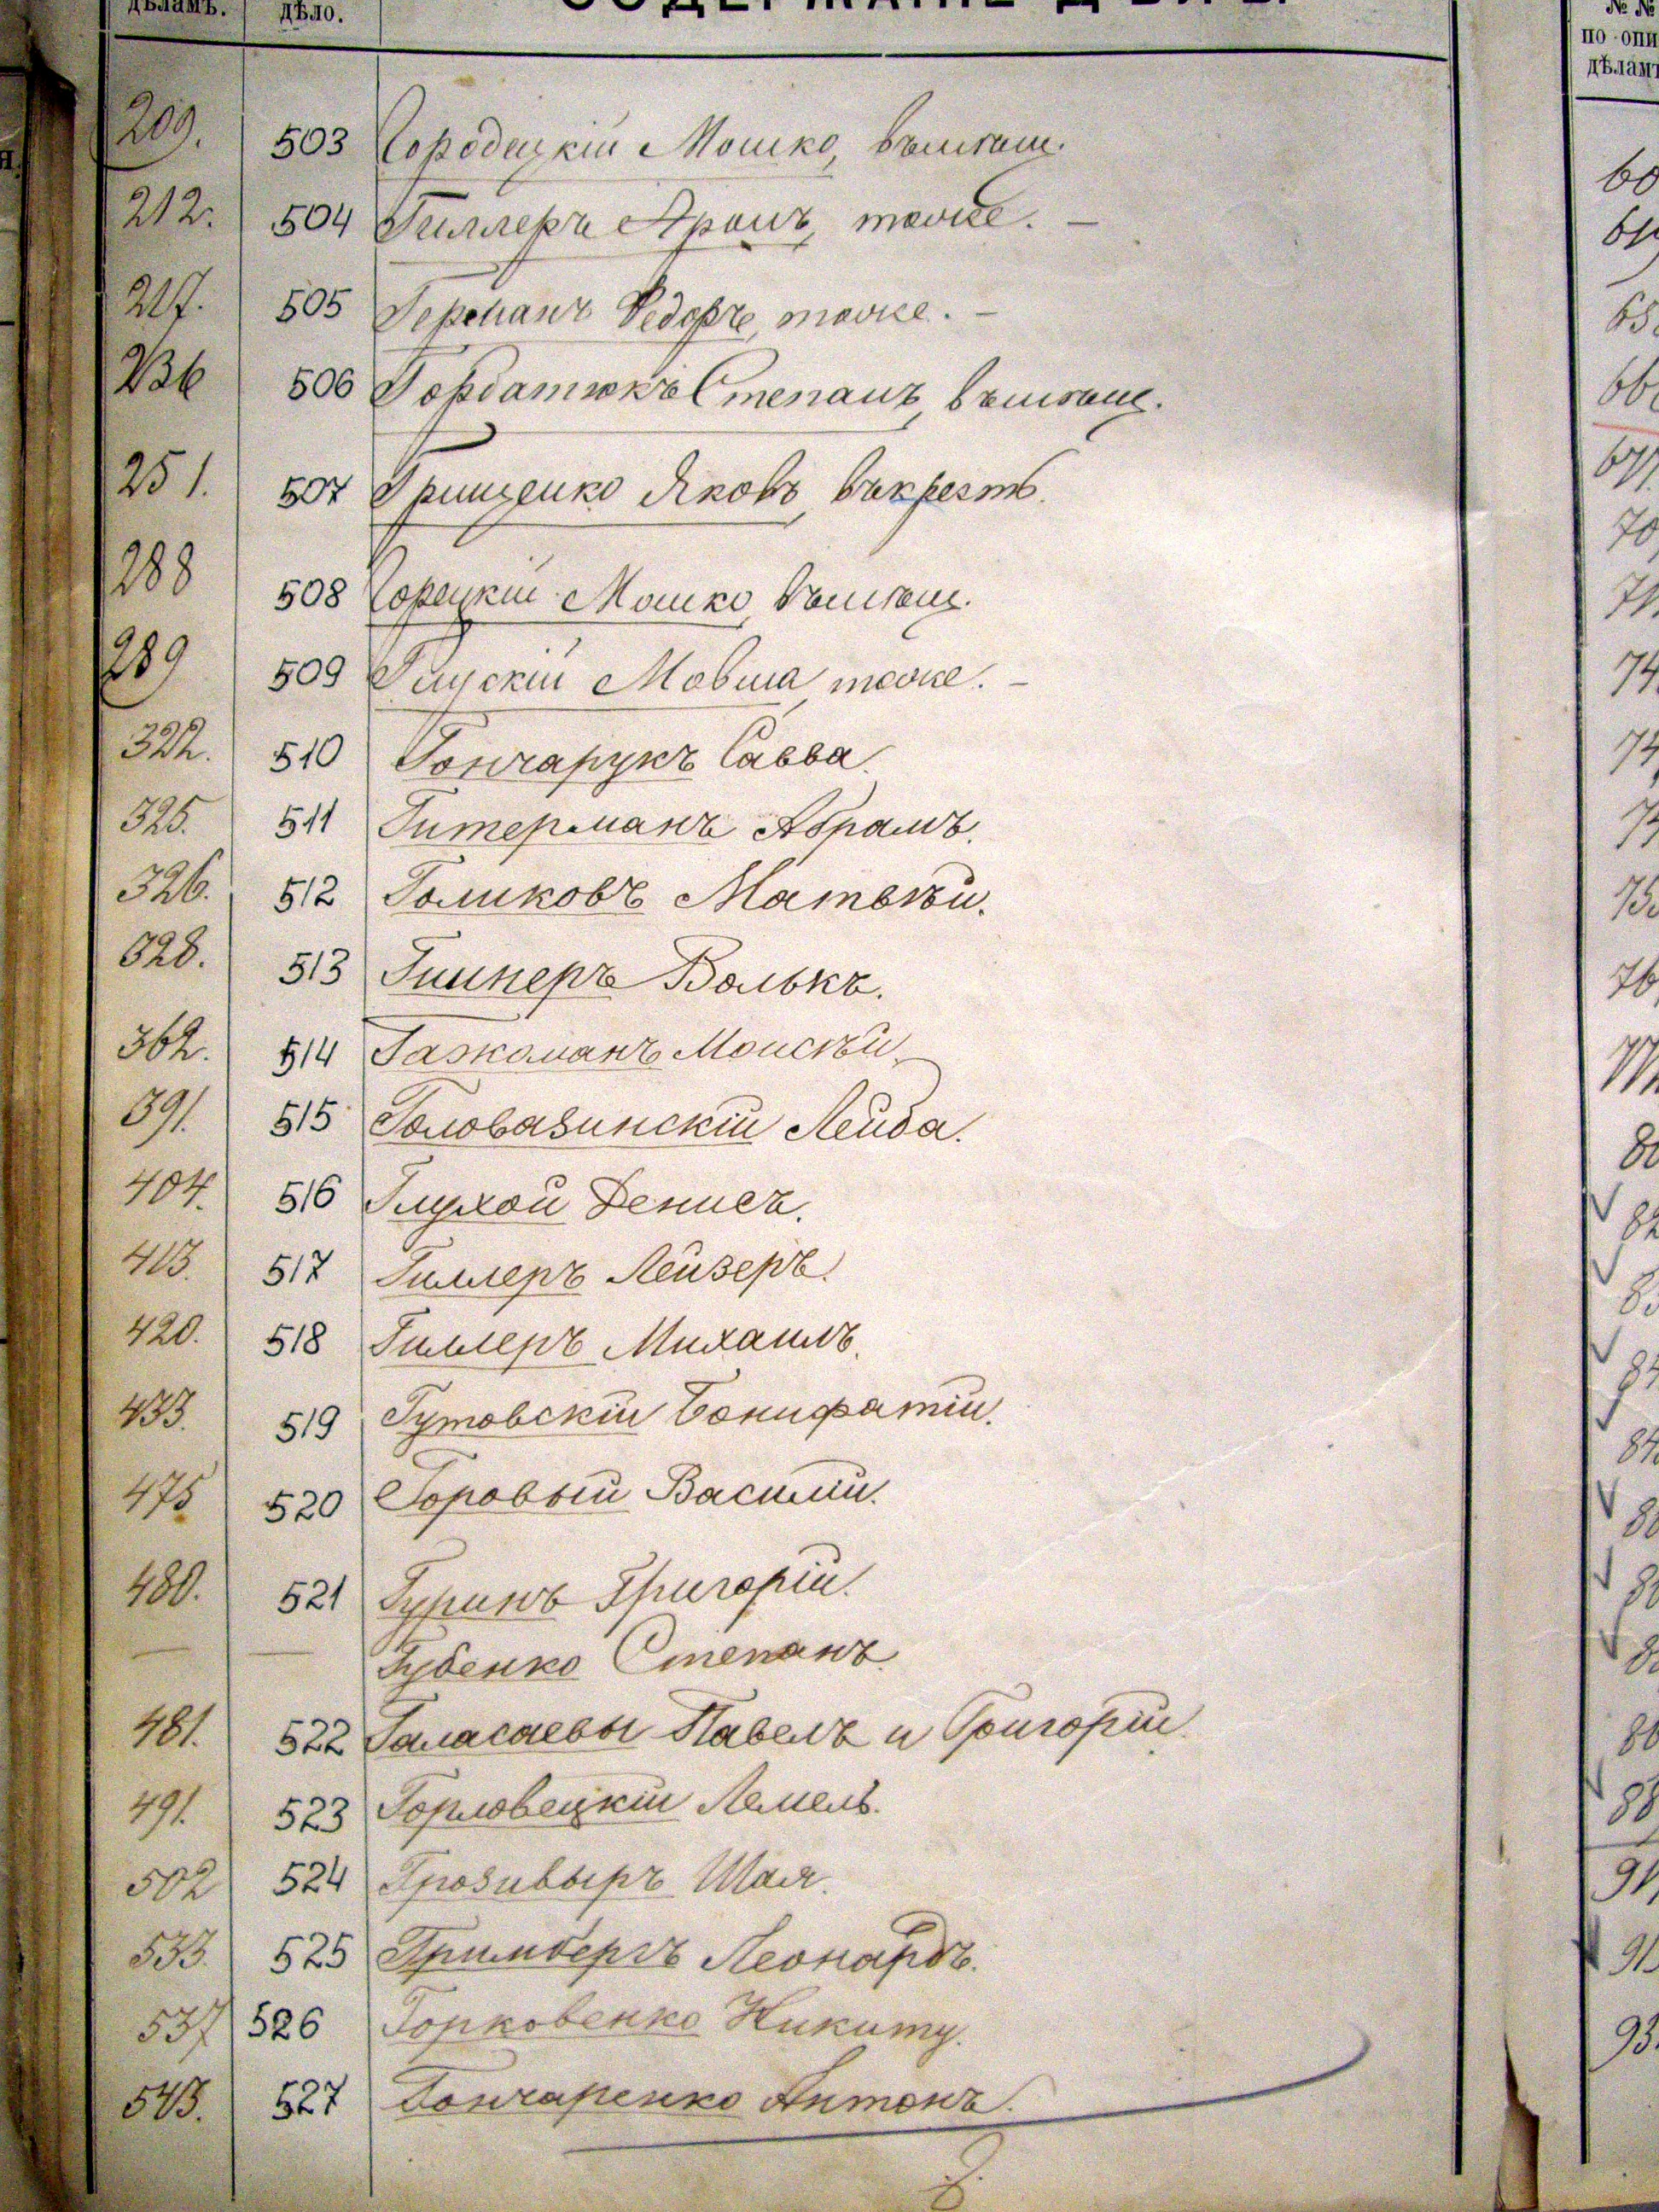 дѣламъ. дѣло. СОДЕРЖАНІЕ ДѢЛЪ
209. 503 Городецкій Мошко, въ мѣщ.
212. 504 Гиллеръ Аронъ, тоже. —
217. 505 Германъ Ѳедоръ, тоже. —
236 506 Горбатюкъ Степанъ, въ мѣщ.
251. 507 Грищенко Яковъ, въ крест.
288 508 Горецкій Мошко, въ мѣщ.
289 509 Глускій Мовша, тоже. —
322. 510 Гончарукъ Савва.
325. 511 Гитерманъ Абрамъ.
326. 512 Голиковъ Матвѣй.
328. 513 Волькъ.
362. 514 Моисѣй.
391. 515 Головазинскій Лейба.
404. 516 Глухой Денисъ.
413. 517 Гиллеръ Лейзеръ.
420. 518 Гиллеръ Михаилъ.
433. 519 Гутовскій Бонифатій.
475 520 Горовый Василій.
480. 521 Гуринъ Григорій.
— — Губенко Степанъ.
481. 522 Галасаевы Павелъ и Григорій.
491. 523 Горловецкій Лемель.
502 524 Грозивыръ Шая.
533. 525 Гримбергъ Леонардъ.
537 526 Горковенко Никиту.
543. 527 Гончаренко Антонъ.
№ №
по опи
дѣламъ